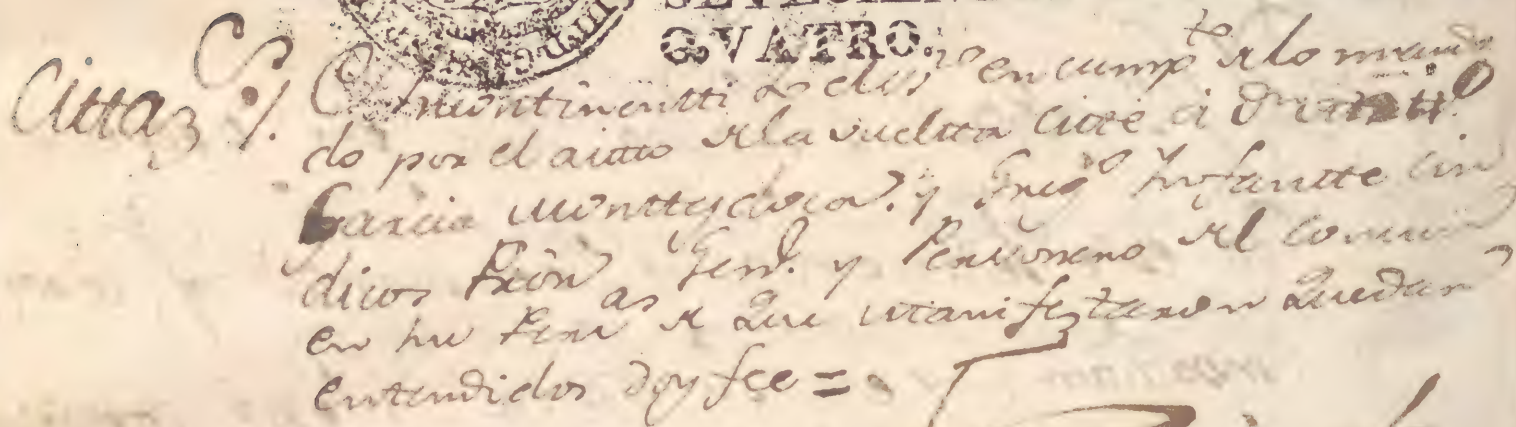 GVATRO.
Cittaz.
Yncontinentti Yo el es.no en cump.to de lo manda
do por el autto de la vueltta citte a
Garcia y Greg.o Ynfantte Sin
dicos Prôn Gen.l y Personero del Comun
en su Perzas de que manifestaron quedar
entendidos doy fee =